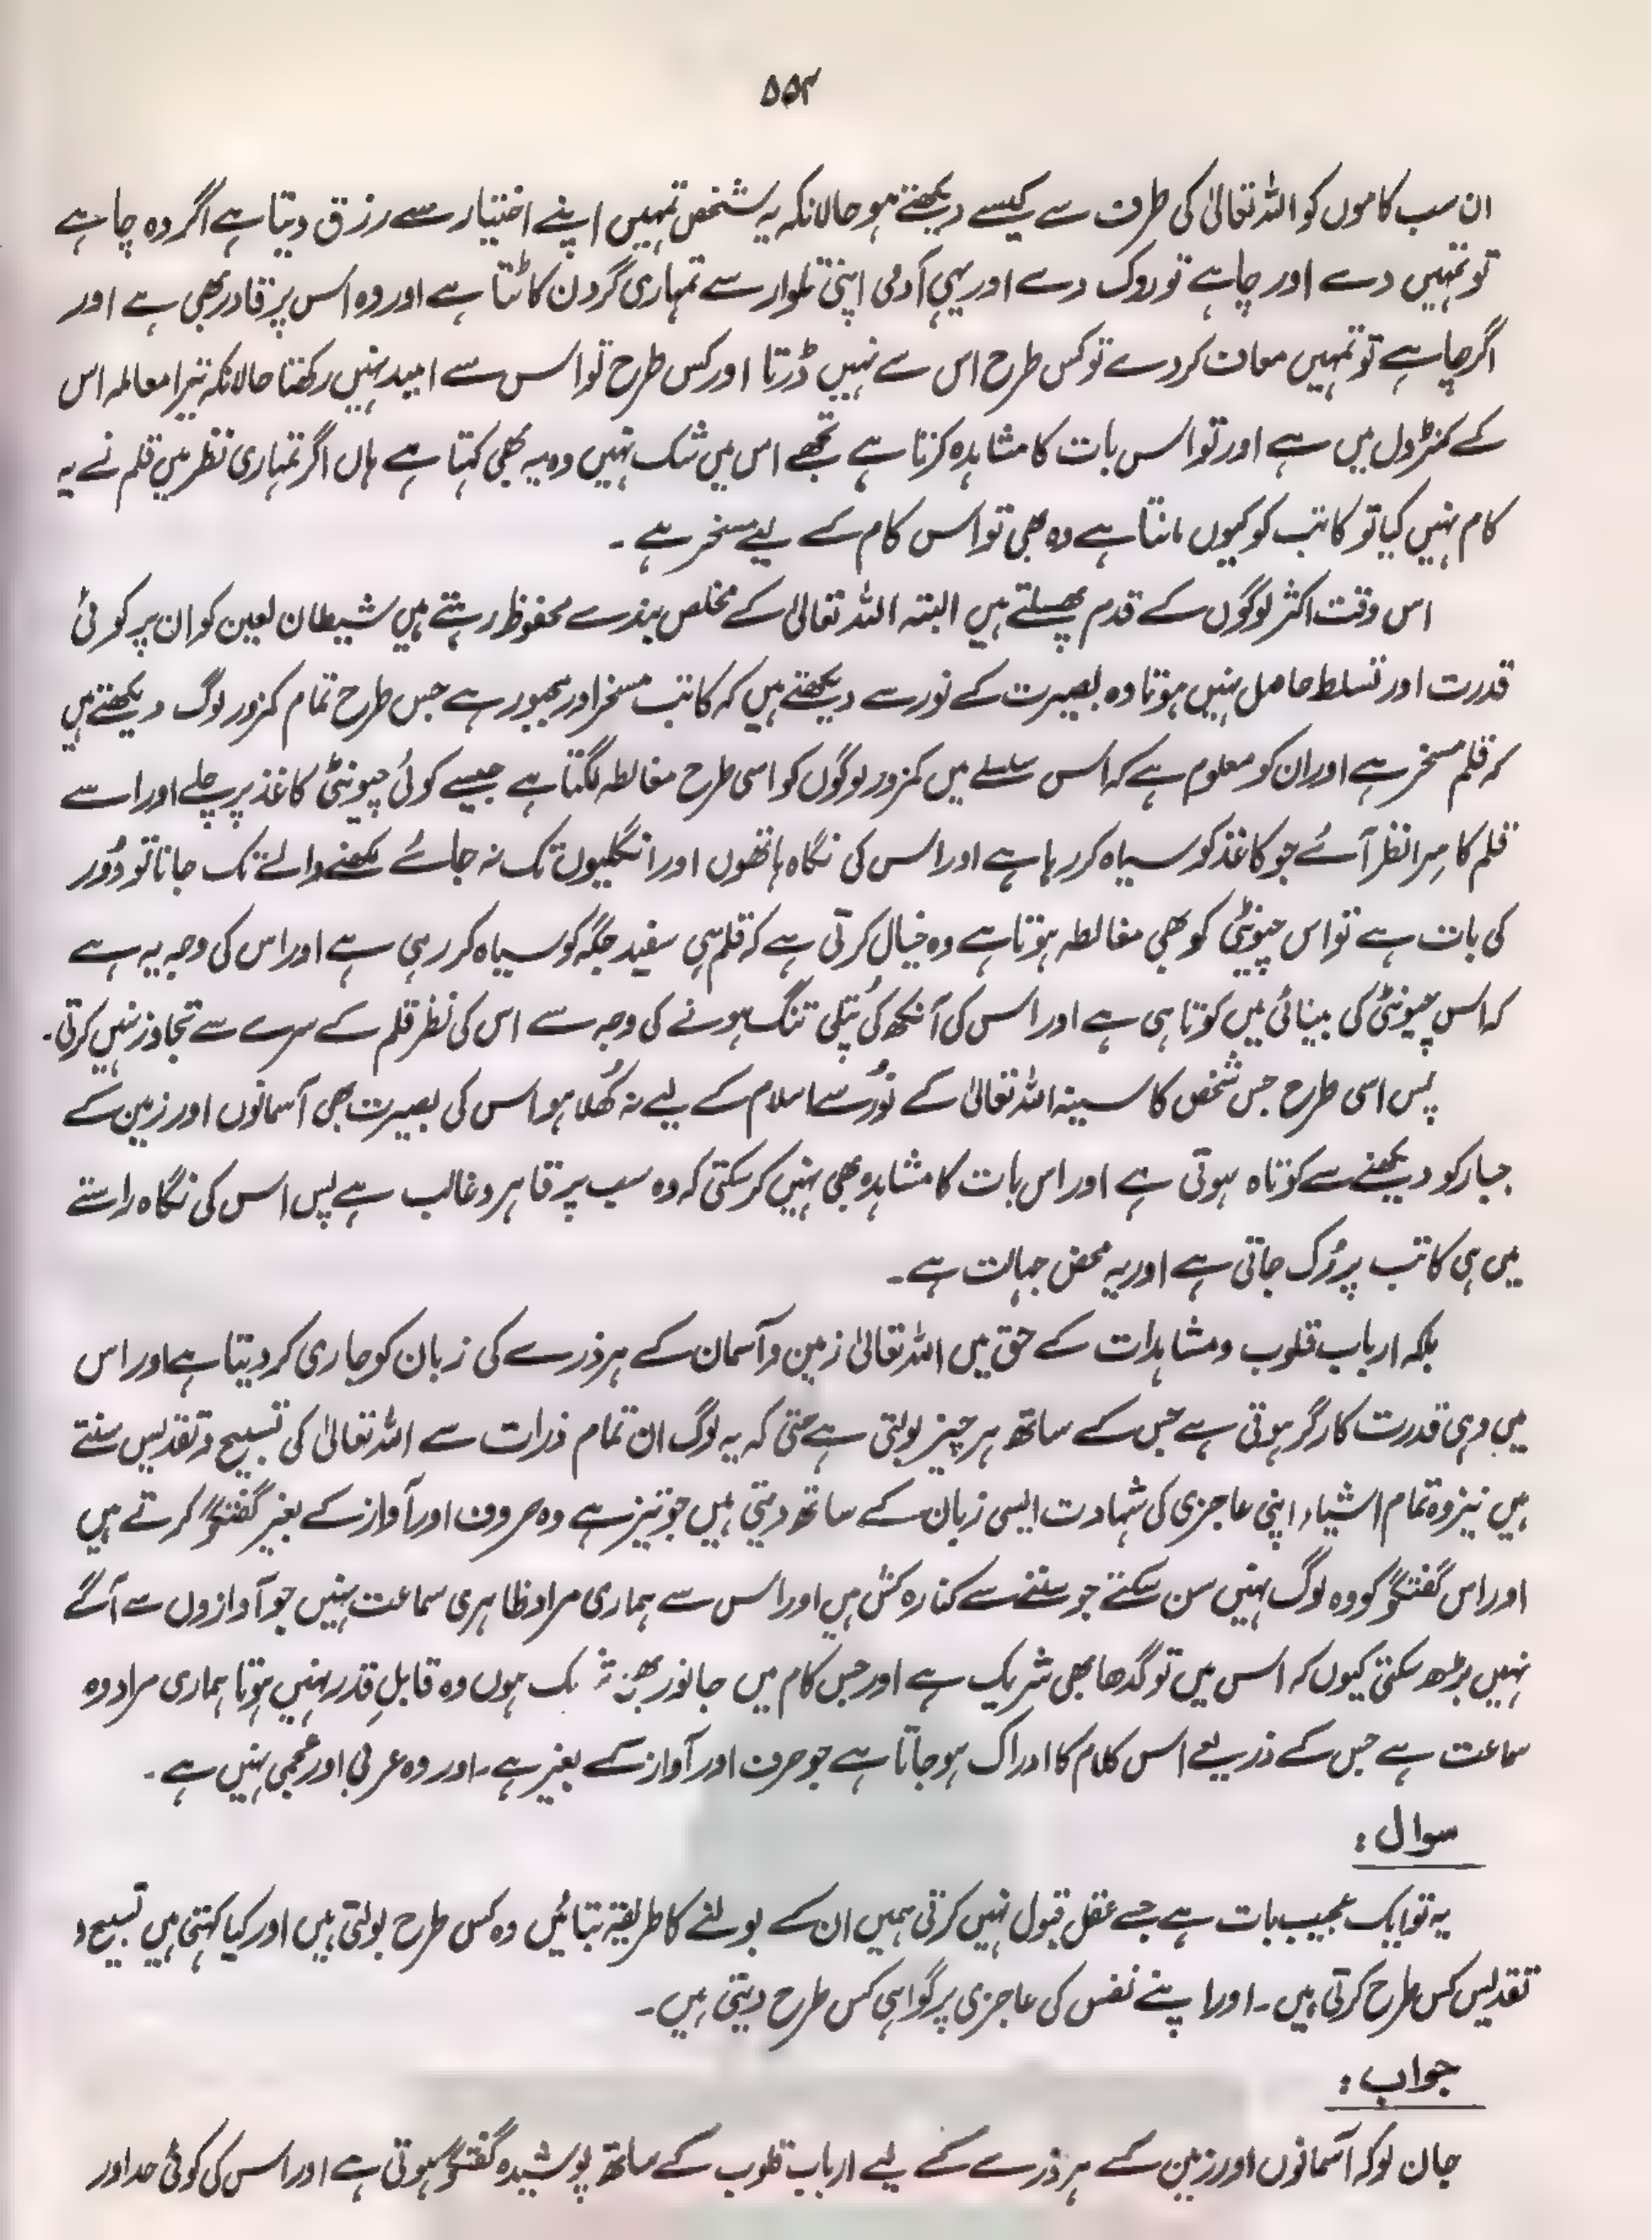 ۵۵۴
ان سب کاموں کو اللہ تعالیٰ کی طرف سے کیسے دیکھتے ہو حالانکہ یہ شخص تمہیں اپنے اختیار سے رزق دیتا ہے اگر وہ چاہے
تو تمہیں دے اور چاہے تو روک دے اور یہی آدمی اپنی تلوار سے تمہاری گردن کاٹتا ہے اور وہ اس پر قادر بھی ہے اور
اگر چاہے تو تمہیں معاف کر دے تو کس طرح اس سے نہیں ڈرتا اور کس طرح تو اس سے امید نہیں رکھتا حالانکہ تیرا معاملہ اس
کے کنٹرول میں ہے اور تو اس بات کا مشاہدہ کرتا ہے تجھے اس میں شک نہیں وہ یہ بھی کہتا ہے ہاں اگر تمہاری نظر میں قلم نے یہ
کام نہیں کیا تو کاتب کو کیوں مانتا ہے وہ بھی تو اس کام کے لیے مسخر ہے ۔
اس وقت اکثر لوگوں کے قدم پھسلتے ہیں البتہ اللہ تعالیٰ کے مخلص بندے محفوظ رہتے ہیں شیطان لعین کو ان پر کوئی
قدرت اور تسلط حاصل نہیں ہوتا وہ بصیرت کے نور سے دیکھتے ہیں کہ کاتب مسخر اور مجبور ہے جس طرح تمام کمزور لوگ دیکھتے ہیں
کہ قلم مسخر ہے اور ان کو معلوم ہے کہ اس سلسلے میں کمزور لوگوں کو اسی طرح مغالطہ لگتا ہے جیسے کوئی چیونٹی کاغذ پر چلے اور اسے
قلم کا سِرا نظر آئے جو کاغذ کو سیاہ کر رہا ہے اور اس کی نگاہ ہاتھوں اور انگلیوں تک نہ جائے لکھنے والے تک جانا تو دُور
کی بات ہے تو اس چیونٹی کو بھی مغالطہ ہوتا ہے وہ خیال کرتی ہے کہ قلم ہی سفید جگہ کو سیاہ کر رہی ہے اور اس کی وجہ یہ ہے
کہ اس چیونٹی کی بینائی میں کوتاہی ہے اور اس کی آنکھ کی پُتلی تنگ ہونے کی وجہ سے اس کی نظر قلم کے سرے سے تجاوز نہیں کرتی۔
پس اسی طرح جس شخص کا سینہ اللہ تعالیٰ کے نُور سے اسلام کے لیے نہ کُھلا ہو اس کی بصیرت بھی آسمانوں اور زمین کے
جبار کو دیکھنے سے کوتاہ ہوتی ہے اور اس بات کا مشاہدہ بھی نہیں کر سکتی کہ وہ سب پر قاہر و غالب ہے پس اس کی نگاہ راستے
میں ہی کاتب پر رُک جاتی ہے اور یہ محض جہالت ہے۔
بلکہ ارباب قلوب و مشاہدات کے حق میں اللہ تعالیٰ زمین و آسمان کے ہر ذرے کی زبان کو جاری کر دیتا ہے اور اس
میں وہی قدرت کارگر ہوتی ہے جس کے ساتھ ہر چیز بولتی ہے حتی کہ یہ لوگ ان تمام ذرات سے اللہ تعالیٰ کی تسبیح و تقدیس سنتے
ہیں نیز وہ تمام اشیاء اپنی عاجزی کی شہادت ایسی زبان کے ساتھ دیتی ہیں جو تیز ہے وہ حروف اور آواز کے بغیر گفتگو کرتے ہیں
اور اس گفتگو کو وہ لوگ نہیں سن سکتے جو سننے سے کنارہ کش ہیں اور اس سے ہماری مراد ظاہری سماعت نہیں جو آوازوں سے آگے
نہیں بڑھ سکتی کیوں کہ اس میں تو گدھا بھی شریک ہے اور جس کام میں جانور ہوں وہ قابلِ قدر نہیں ہوتا ہماری مراد وہ
سماعت ہے جس کے ذریعے اس کلام کا ادراک ہو جاتا ہے جو حرف اور آواز کے بغیر ہے ۔ اور وہ عربی اور عجمی نہیں ہے ۔
سوال :
یہ تو ایک عجیب بات ہے جسے عقل قبول نہیں کرتی ہمیں ان کے بولنے کا طریقہ بتائیں وہ کس طرح بولتی ہیں اور کیا کہتی ہیں تسبیح و
تقدیس کس طرح کرتی ہیں ۔ اور اپنے نفس کی عاجزی پر گواہی کس طرح دیتی ہیں ۔
جواب :
جان لو کہ آسمانوں اور زمین کے ہر ذرے کے لیے ارباب قلوب کے ساتھ پوشیدہ گفتگو ہوتی ہے اور اس کی کوئی حد اور